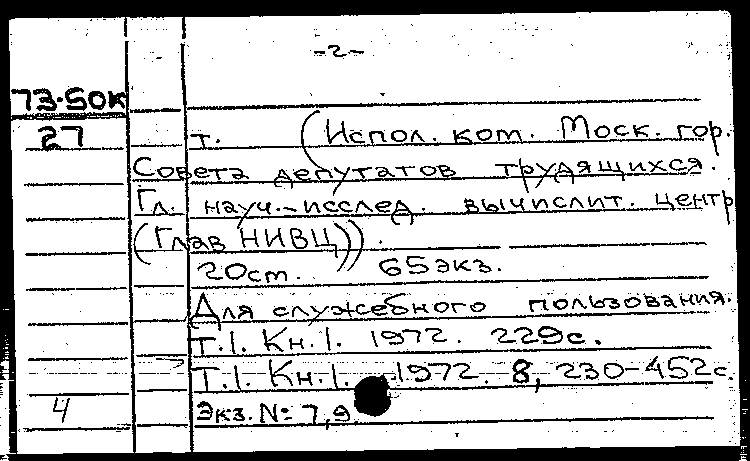 -2-
73-50к
27 т. (Испол. ком. Моск. гор.
Совета депутатов трудящихся.
Гл. науч.-исслед. вычислит. центр
(Глав НИВЦ)).
20см. 65экз.
Для служебного пользования.
Т.1. Кн.1. 1972. 229с.
Т.1. Кн.1. 1972. 8, 230-452с.
4 Экз. №: 7,9